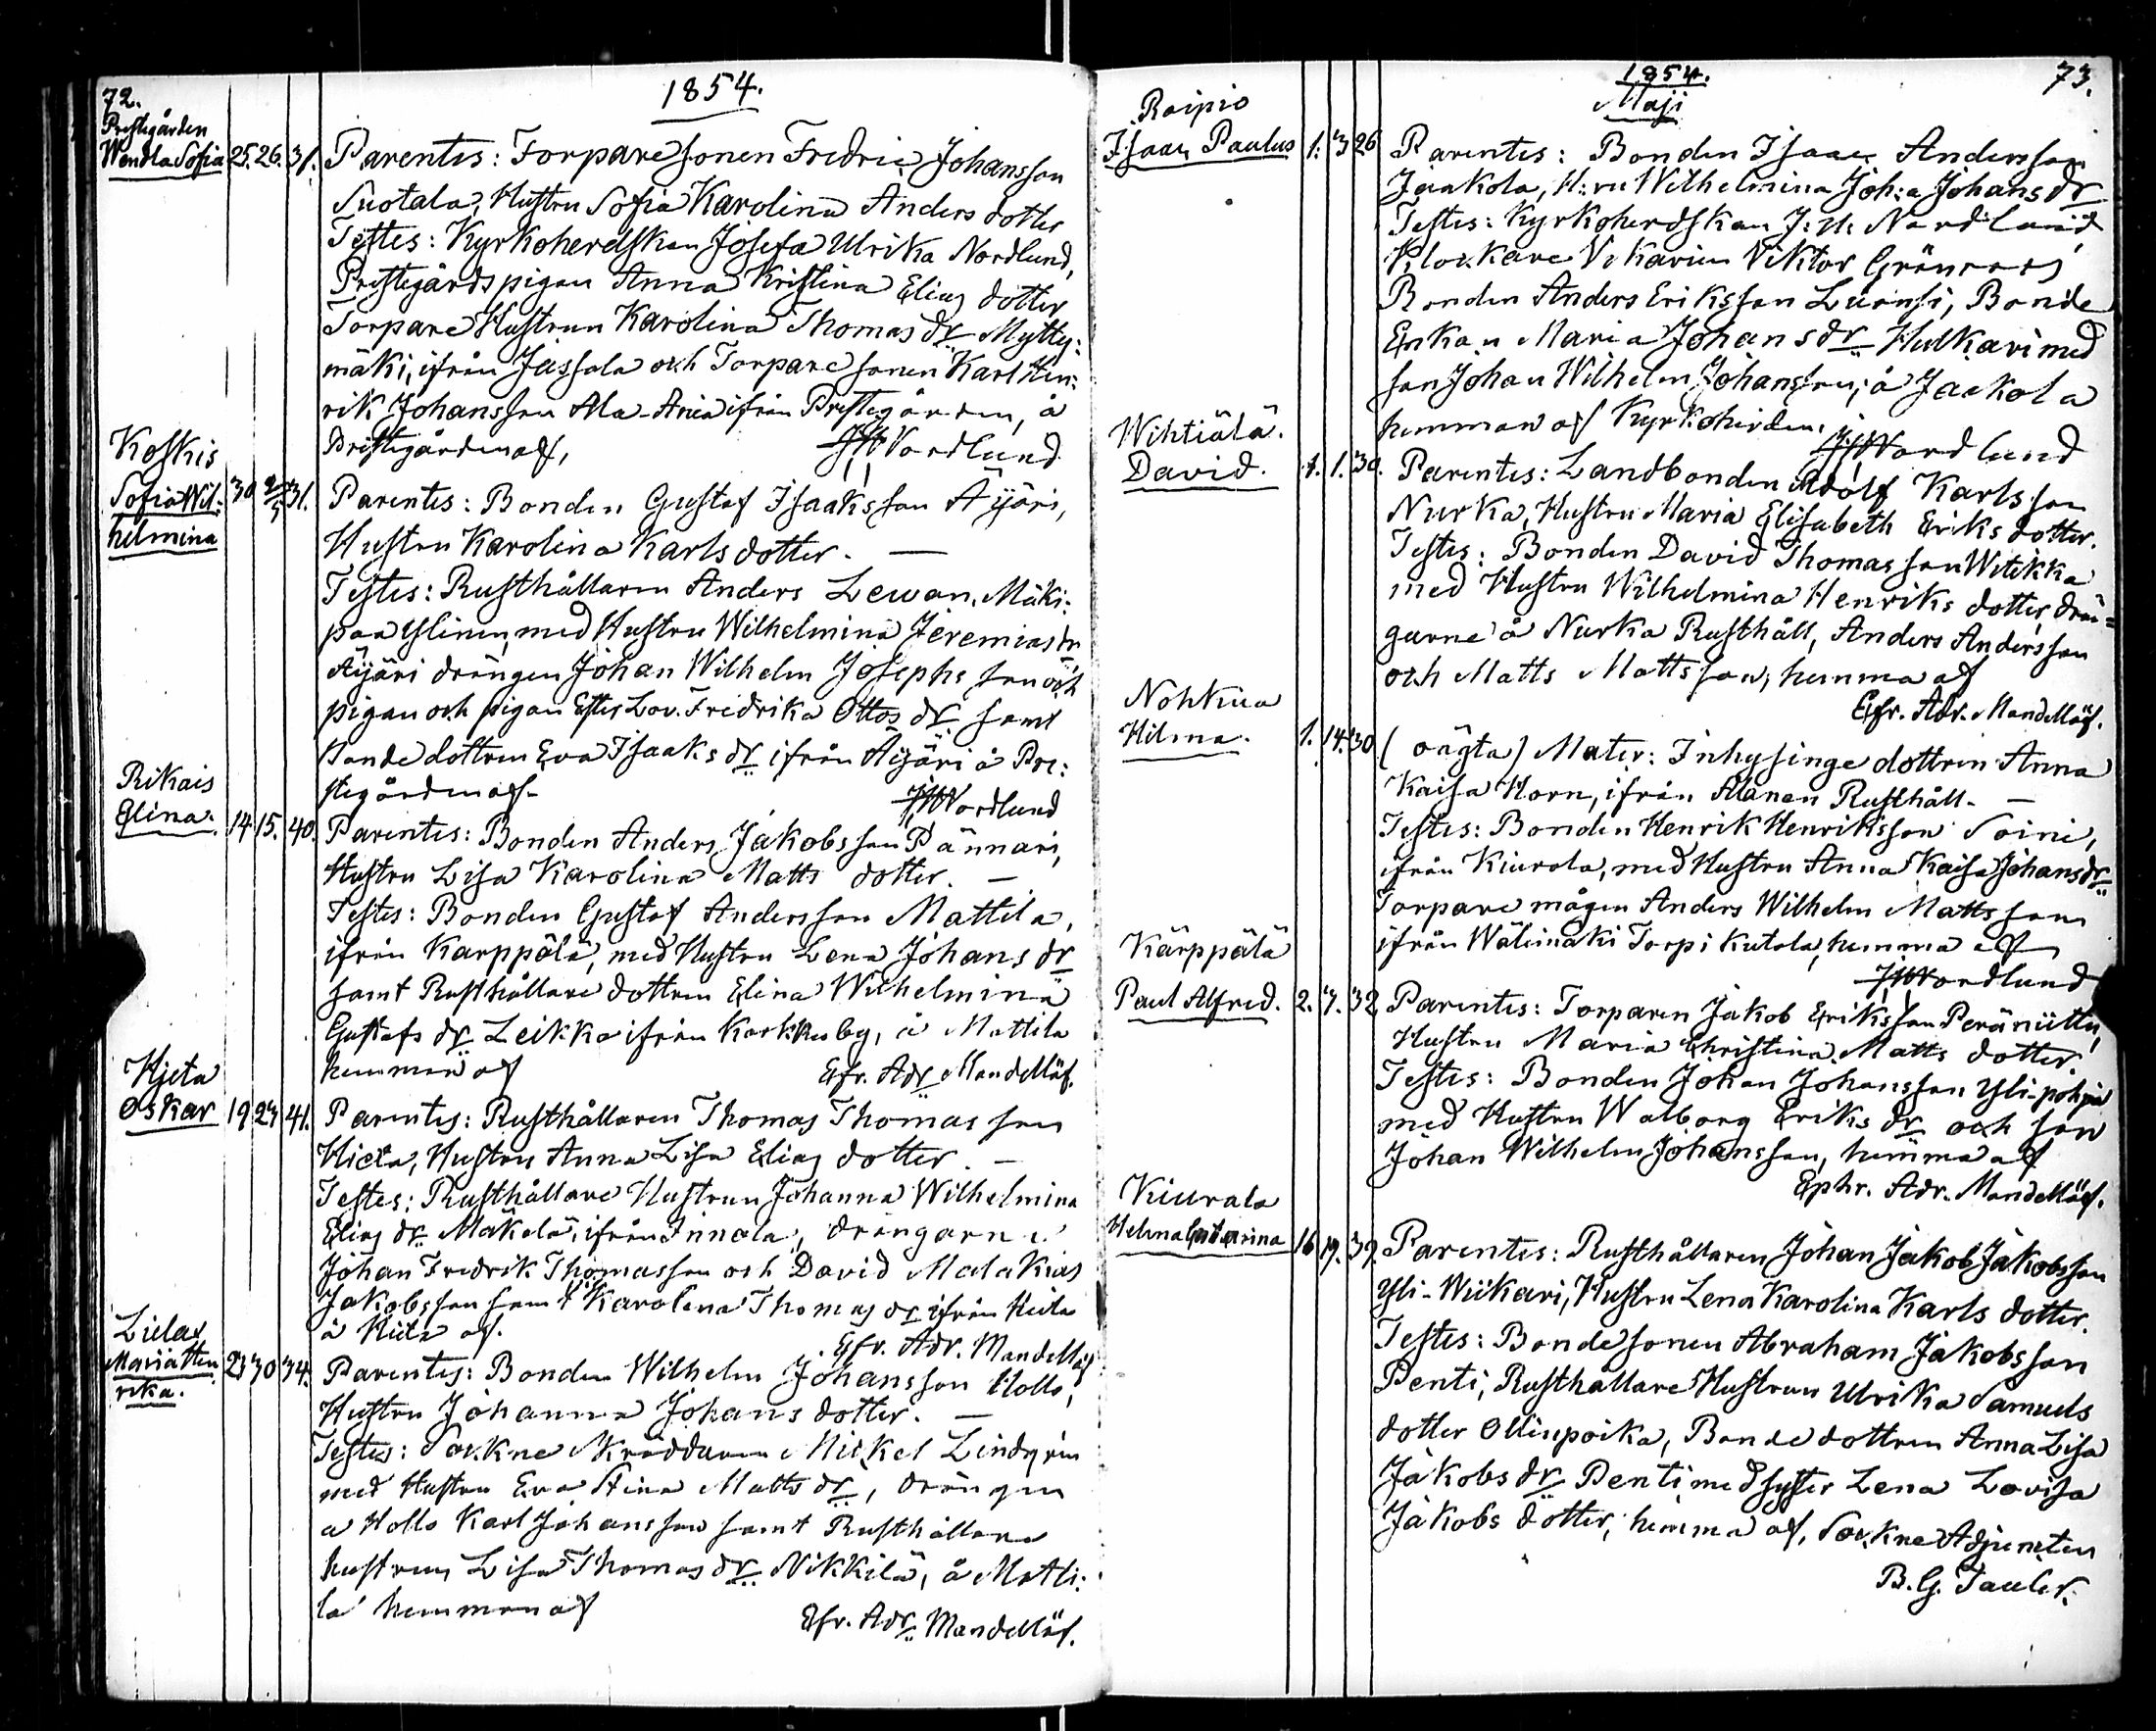 72.
1854.
Prestegården
Wendla Sofia 25. 26. 31. Parentes: Torparesonen Fredric Johansson
Suotala, Hustru Sofia Karolina Anders dotter
Testes: Kyrkoherdskan Josefa Ulrika Nordlund,
Prestegårdspigan Anna Kristina Elias dotter
Torpare Hustrun Karolina Thomas dr Mytty-
mäki, ifrån Jassala och Torpare sonen Karl Hen-
rik Johansson Ala-Ania ifrån Prestegården, å
Prestegården af,
Nordlund
Koskis
Sofia Wil- 30 2/5 31. Parentes: Bonden Gustaf Isaaksson Äijäri,
helmina
Hustru Karolina Karls dotter. —
Testes: Rusthållaren Anders Lewan. Mäki-
paa Ylinen, med Hustru Wilhelmina Jeremias dr
Äijäri drängen Johan Wilhelm Josephsson och
pigan och pigan Ester Lov. Fredrika Ottos dr samt
Bonde dottren Eva Isaaks dr ifrån Äijäri å Pre-
stegården af.
Nordlund
Rikais
Elina. 14 15. 40. Parentes: Bonden Anders Jakobsson Pännäri,
Hustru Lisa Karolina Matts dotter. —
Testes: Bonden Gustaf Andersson Mattila,
ifrån Karppälä, med Hustru Lena Johans dr
samt Rusthållare dottren Elina Wilhelmina
Gustafs dr Leikko ifrån Karkkusby, å Mattila
hemman af
Efr. Adr Mandellöf.
Hjeta
Oskar 19 23 41. Parentes: Rusthållaren Thomas Thomasson
Hieta, Hustru Anna Lisa Elias dotter. —
Testes: Rusthållare Hustrun Johanna Wilhelmina
Elias dr Mäkelä, ifrån Innala, drängarne
Johan Fredrik Thomasson och David Malakias
Jakobsson samt Karolina Thomas dr ifrån Hieta
å Hieta af.
Efr. Adr. Mandellöf
Liela
Maria Hen 23 30 34. Parentes: Bonden Wilhelm Johansson Hollo,
rika.
Hustru Johanna Johans dotter. —
Testes: Sockne Skräddaren Mickel Lindqvin
med Hustru Eva Stina Matts dr, drängen
a Hollo Karl Johansson samt Rusthållare
hustrun Lisa Thomas dr Nikkilä, å Matti-
la hemman af
Efr. Adr Mandellöf.
1854. 73.
Maji
Roipio
Isaac Paulus 1. 3 26 Parentes: Bonden Isaac Andersson
Jaakola, H:ru Wilhelmina Joh:a Johans dr
Testes: Kyrkoherdskan J: U: Nordlund
Klockare Vikarien Viktor Grönroos
Bonden Anders Eriksson Luonsi, Bonde
Enkan Maria Johans dr Hulkari med
son Johan Wilhelm Johansson, å Jaakola
hemman af Kyrkoherden.
Nordlund
Wihtiälä.
David. 1. 1. 30. Parentes: Landbonden Adolf Karlsson
Nurka, Hustru Maria Elisabeth Eriks dotter.
Testes: Bonden David Thomasson Witikka
med Hustru Wilhelmina Henriks dotter, drän-
garne å Nurka Rusthåll, Anders Andersson
och Matts Mattsson, hemma af
Efr. Adr. Mandellöf.
Nohkua
Hilma. 1. 14. 30 (oägta) Mater: Inhysinge dottren Anna
Kaisa Horn, ifrån Alanen Rusthåll. —
Testes: Bonden Henrik Henriksson Soini,
ifrån Kiurola, med Hustru Anna Kaisa Johans dr
Torpare mågen Anders Wilhelm Mattsson
ifrån Wälimäki Torp i Kutala, hemma af
Nordlund
Kärppälä
Paul Alfred. 2. 7. 32 Parentes: Torparen Jakob Eriksson Peräniittu,
Hustru Maria Christina Matts dotter.
Testes: Bonden Johan Johansson Yli-pohja
med Hustru Walborg Eriks dr och son
Johan Wilhelm Johansson, hemma af
Ephr. Adr. Mandellöf.
Kiurala
Helena Catarina 16 19. 39. Parentes: Rusthållaren Johan Jakob Jakobsson
Yli-Wiikari, Hustru Lena Karolina Karls dotter.
Testes: Bondesonen Abraham Jakobsson
Penti, Rusthållare Hustrun Ulrika Samuels
dotter Ollinpoika, Bonde dottren Anna Lisa
Jakobs dr Penti med syster Lena Lovisa
Jakobs dotter, hemma af, Sockne Adjuncten
B. G. Tauler.